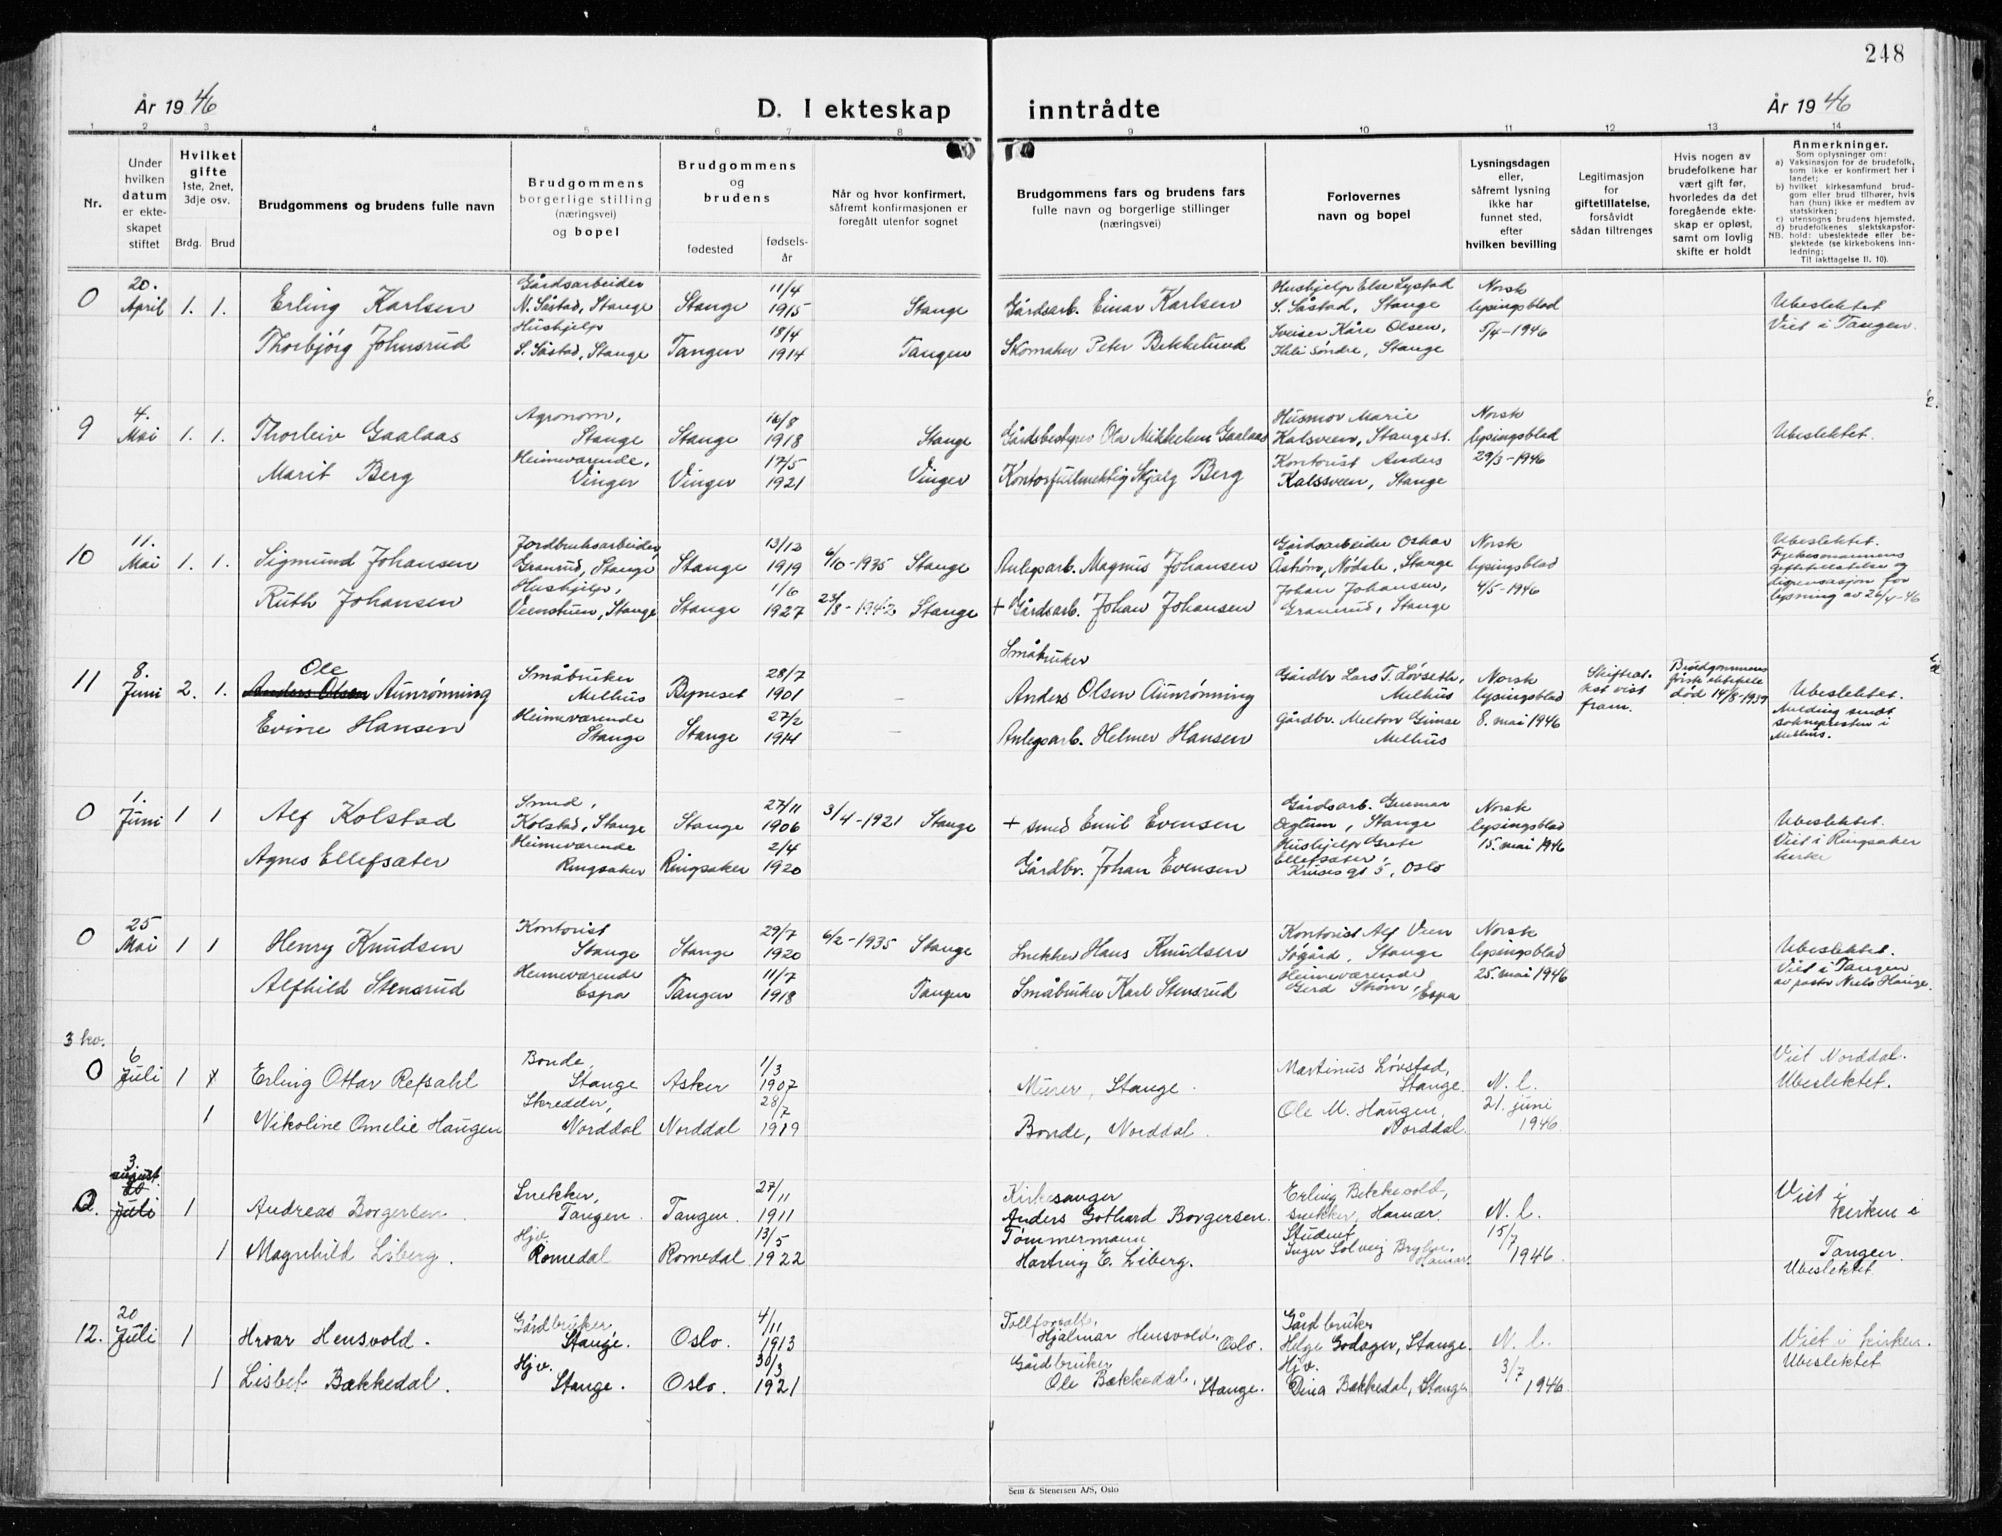 248
År 1946
D. I ekteskap inntrådte
År 1946
1 2 3 4 5 6 7 8 9 10 11 12 13 14
Nr.
Under hvilken datum er ekteskapet stiftet
Hvilket gifte 1ste, 2net, 3dje osv.
Brdg. Brud
Brudgommens og brudens fulle navn
Brudgommens borgerlige stilling (næringsvei) og bopel
Brudgommens og brudens
fødested
fødselsår
Når og hvor konfirmert, såfremt konfirmasjonen er foregått utenfor sognet
Brudgommens fars og brudens fars fulle navn og borgerlige stillinger (næringsvei)
Forlovernes navn og bopel
Lysningsdagen eller, såfremt lysning ikke har funnet sted, efter hvilken bevilling
Legitimasjon for giftetillatelse, forsåvidt sådan tiltrenges
Hvis nogen av brudefolkene har vært gift før, hvorledes da det foregående ekteskap er opløst, samt om lovlig skifte er holdt
Anmerkninger.
Som oplysninger om:
a) Vaksinasjon for de brudefolk, som ikke er konfirmert her i landet;
b) hvilket kirkesamfund brudgom eller brud tilhører, hvis han (hun) ikke er medlem av statskirken;
c) utensogns brudens hjemsted.
d) brudefolkenes slektskapsforhold: ubeslektede eller beslektede (se kirkebokens innledning;
NB. Til iakttagelse II. 10).
0 20. April 1. 1. Erling Karlsen
Gårdsarbeider N. Såstad, Stange Stange 11/4 1915 Stange
Gårdsarb. Einar Karlsen
Hushjelp Else Lystad S. Såstad, Stange
Norsk lysingsblad 5/4-1946
Ubeslektet Viet i Tangen.
Thorbjörg Johnsrud
Hushjelp S. Såstad, Stange Tangen 18/4 1914 Tangen
Skomaker Peter Bekkelund
Sveiser Kåre Olsen, søndre, Stange
9 4. Mai 1. 1. Thorleiv Gaalaas
Agronom, Stange Stange 1918 Stange
Gårdsbestyrer Ola Mikkelsen Gaalaas
Husmor Marie Kalsveen, Stange st.
Norsk lysingsblad 29/3-1946
Ubeslektet.
Marit Berg
Heimeværende, Vinger Vinger 17/5 1921 Vinger
Kontorfullmektig Skjalg Berg
Kontorist Anders Kalssveen, Stange
10 11. Mai 1. 1. Sigmund Johansen
Jordbruksarbeider Granrud, Stange Stange 13/12 1919 6/10-1935 Stange
Anlegsarb. Magnus Johansen
Gårdsarbeider Oskar Åström, Nödsle, Stange
Norsk lysingsblad 4/5-1946
Ubeslektet. Fylkesmannens giftetillatelse og dispensasjon for lysning av 26/4-46
Ruth Johansen
Hushjelp, Veenstuen, Stange Stange 1/6 1927 23/8-1942 Stange
+ Gårdsarb. Johan Johansen
Johan Johansen, Granrud, Stange
11 8. Juni 2. 1. Ole Anders Olsen Aunrønning
Småbruker Melhus Byneset 28/7 1901 –
Småbruker Anders Olsen Aunrønning
Gårdbr Lars T. Løvseth, Melhus
Norsk lysingsblad 8. mai 1946
Skifteattest vist fram.
Brudgommens første ektefelle død 14/8-1939
Ubeslektet. Melding sendt soknepresten i Melhus.
Evine Hansen
Heimeværende Stange Stange 27/2 1914
Anlegsarb. Helmer Hansen
Gårdbr. Melton Gimse Melhus
0 1. Juni 1 1 Alf Kolstad
Smed, Kolstad, Stange Stange 27/11 1906 3/4-1921 Stange
+ smed Emil Evensen
Gårdsarb. Gunnar Degtum, Stange
Norsk lysingsblad 15. mai 1946
Ubeslektet. Viet i Ringsaker kirke
Agnes Ellefsæter
Heimeværende Ringsaker Ringsaker 2/4 1920
Gårdbr. Johan Evensen
Hushjelp Grete Ellefsæter, Kruses gt 5, Oslo
0 25 Mai 1 1 Henry Knudsen
Kontorist Stange Stange 29/7 1920 6/2-1935 Stange
Snekker Hans Knudsen
Kontorist Alf Vien Søgård, Stange
Norsk lysingsblad 25. mai 1946
Ubeslektet. Viet i Tangen av pastor Niels Hauge.
Alfhild Stensrud
Heimeværende Espa Tangen 11/7 1918 Tangen
Småbruker Karl Stensrud
Heimeværende Gerd Strøm, Espa
3 kv.
0 6 Juli 1 Erling Ottar Refsahl
Bonde, Stange Asker 1/3 1907
Murer, Stange.
Martinus Lövstad, Stange.
N. l. 21. juni 1946.
Viet Norddal. Ubeslektet.
1 Nikoline Omelie Haugen
Skredder, Norddal Norddal 28/7 1919
Bonde, Norddal.
Ole M. Haugen, Norddal.
0. 3 august 20 Juli 1 Andreas Borgersen.
Snekker, Tangen. Tangen. 27/11 1911
Kirkesanger Anders Gothard Borgersen.
Erling Bekkevold, snekker, Hamar.
N. l. 15/7 1946.
Viet i kirken i Tangen. Ubeslektet
1 Magnhild Liberg.
Hjv. Romedal Romedal 13/5 1922
Tømmermann Hartvig E. Liberg.
Student Inger Solveig Hamar.
12. 20 Juli 1 Hroar Hensvold.
Gårdbruker, Stange. Oslo. 4/11 1913
Tollforvalter Hjalmar Hensvold, Oslo.
Gårdbruker Helge Godager, Stange.
N. l. 3/7 1946.
Viet i kirken. Ubeslektet
1 Lisbet Bækkedal.
Hjv. Stange. Oslo. 30/3 1921
Gårdbruker Ole Bækkedal, Stange.
Hjv. Dina Bækkedal, Stange
Sem & Stenersen A/S, Oslo